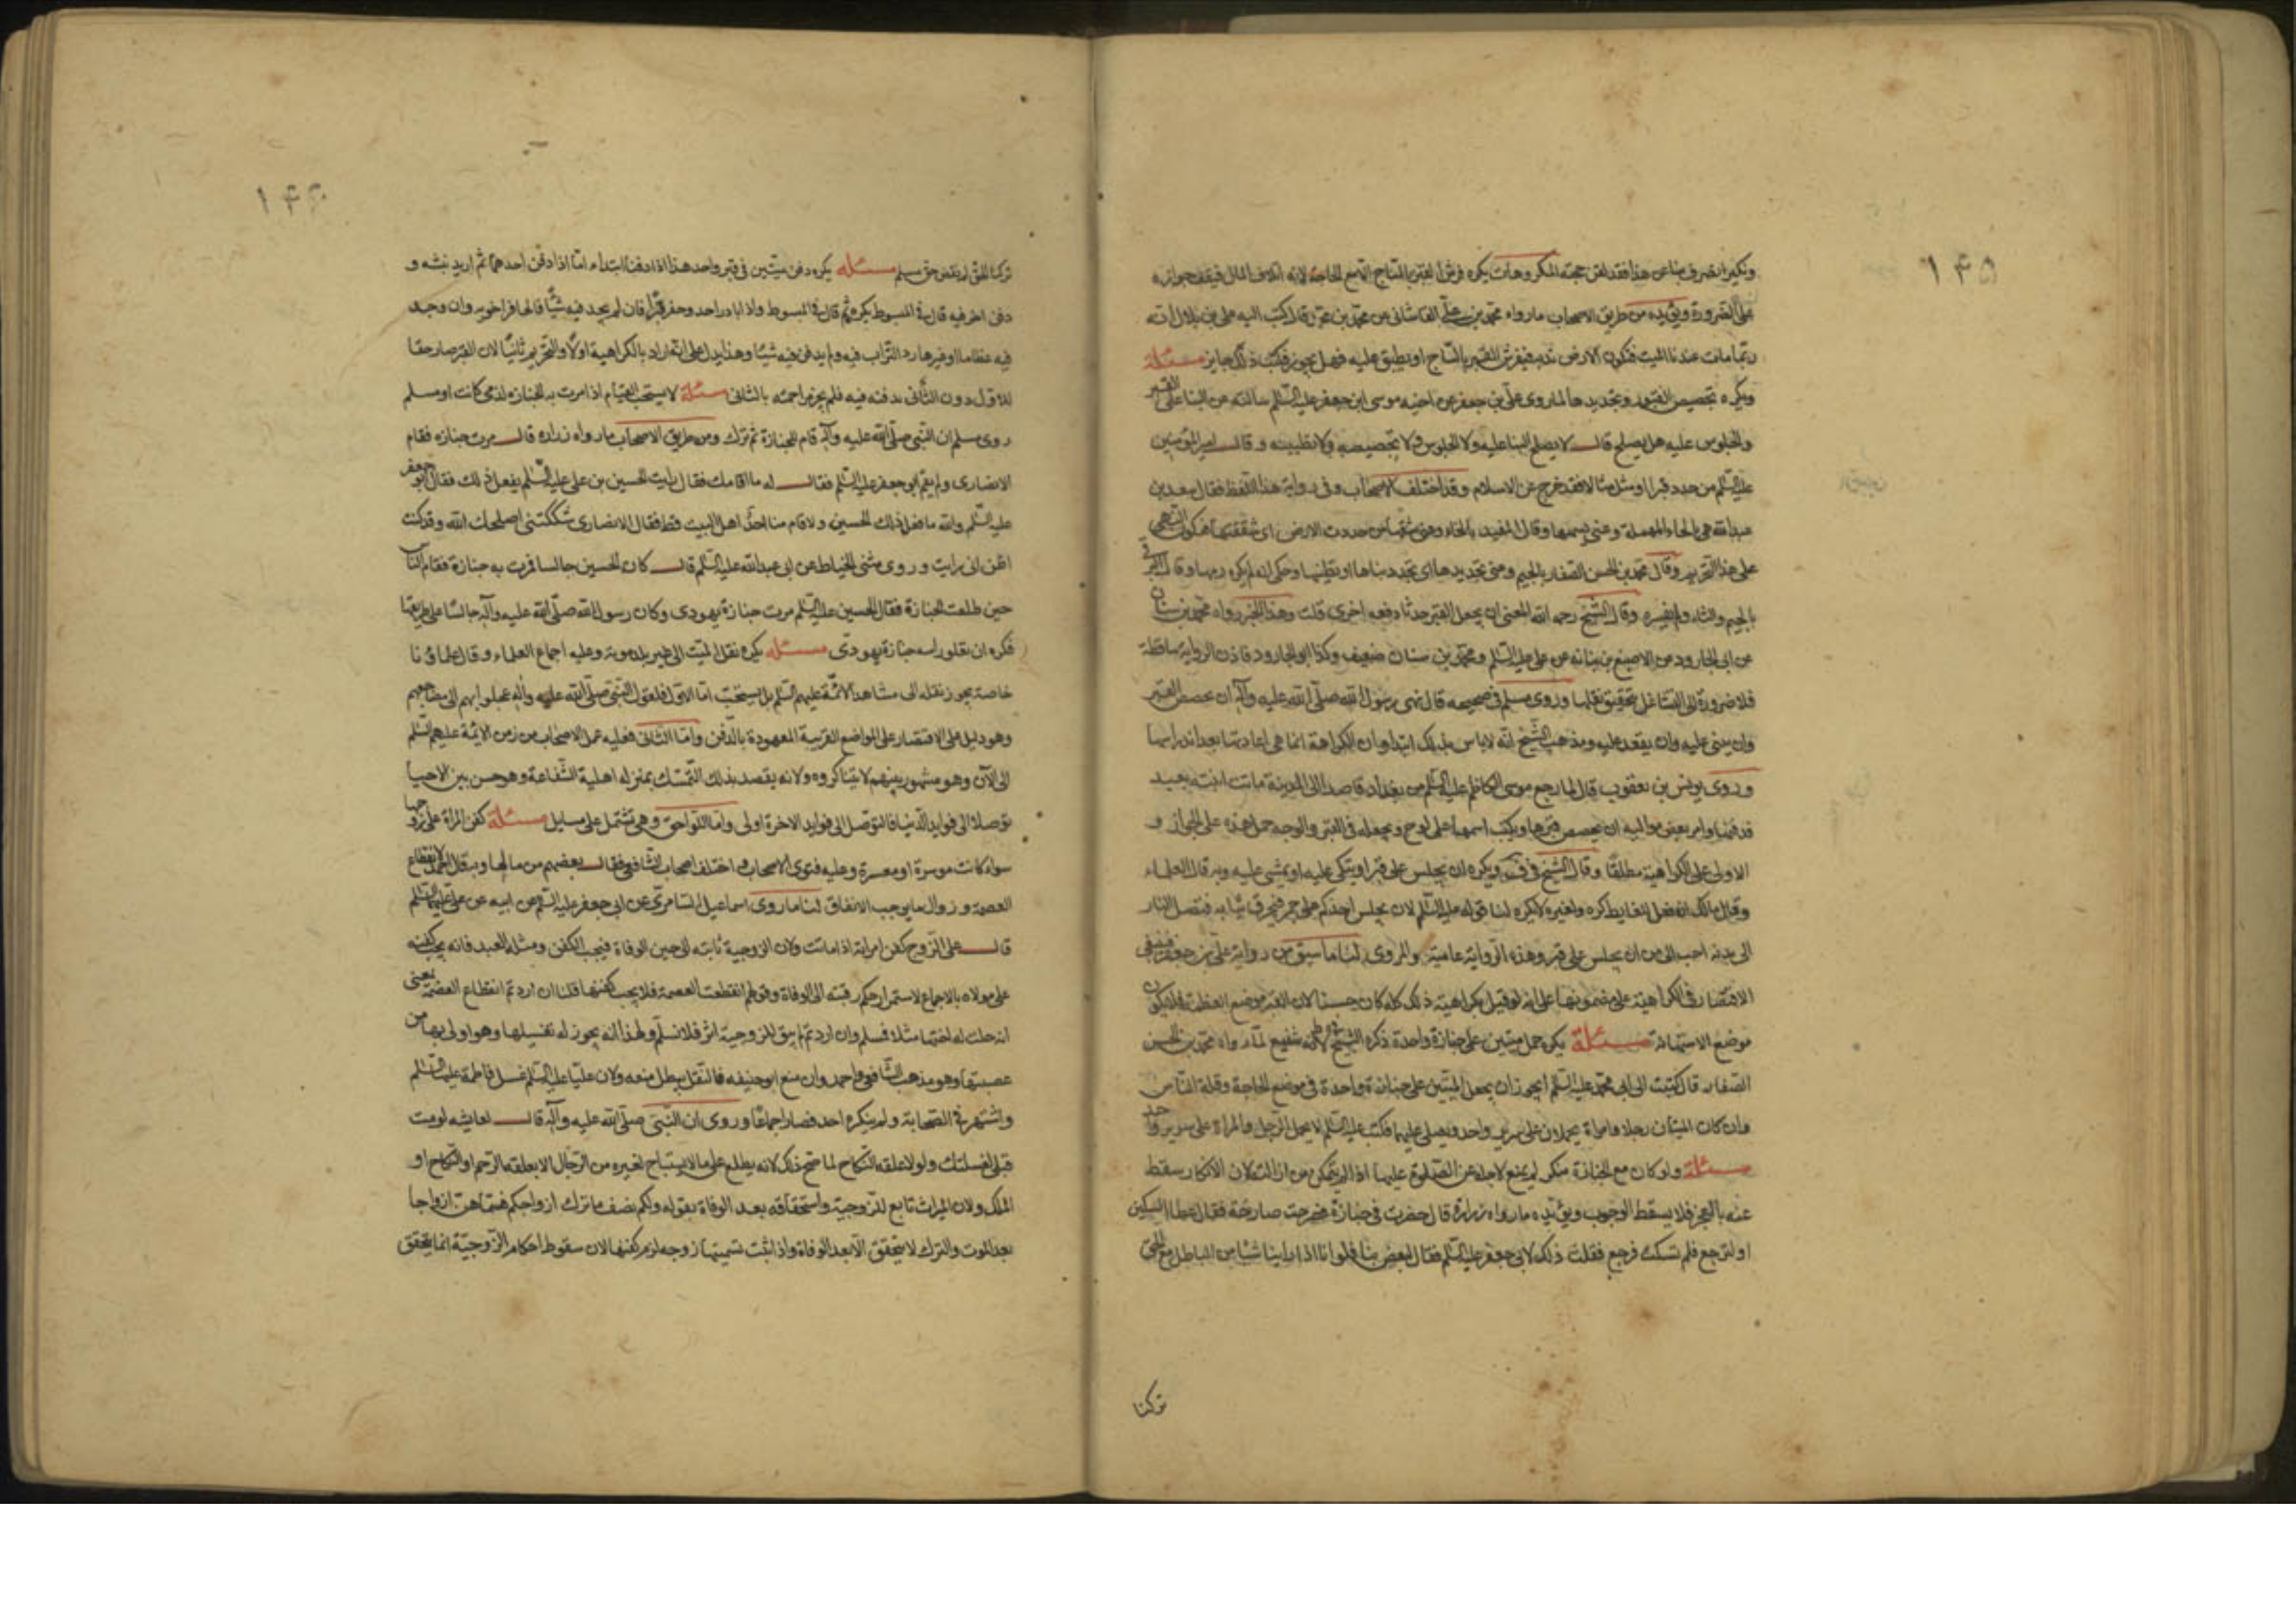 ١٤٥
على الضرورة ويؤيده من طريق الاصحاب ما رواه محمد بن علي القاشاني عن محمد بن قال كتب اليه علي بن بلال انه
ربما مات عندنا الميت فتكون الارض ندية فيفرش القبر بالساج او يطبق عليه فهل يجوز فكتب ذلك جايز مسئلة
ويكره تجصيص القبور وتجديدها لما روى علي بن جعفر عن اخيه موسى ابن جعفر عليه السلم سالته عن البنا على القبر
والجلوس عليه هل يصلح قال لا يصلح البنا عليه ولا الجلوس ولا تجصيصه ولا تطيينه وقال امير المؤمنين
عليه السلم من جدد قبرا او مثل مثالا فقد خرج عن الاسلام وقد اختلف الاصحاب في رواية هذا اللفظ فقال سعد بن
عبد الله هي بالحاء المهملة وعنى بتسنيمها وقال المفيد بالخاء من خددت الارض اى شققتها فيكون النهى
بالجيم والثاء ولم يفسره وقال الشيخ رحمه الله المعنى ان يجعل القبر جدثا دفعه اخرى قلت وهذا الخبر رواه محمد بن سنان
عن ابى الجارود عن الاصبغ بن نباته عن على عليه السلم ومحمد بن سنان ضعيف وكذا ابو الجارود فاذن الرواية ساقطة
فلا ضرورة الى التشاغل بتحقيق نقلها وروى مسلم في صحيحه قال نهى رسول الله صلى الله عليه وآله ان يجصص القبر
وان يبنى عليه وان يقعد عليه ومذهب الشيخ انه لا باس بذلك ابتداء وان الكراهة انما هى اعادتها بعد اندراسها
وروى يونس بن يعقوب قال لما رجع موسى الكاظم عليه السلم من بغداد قاصدا الى المدينة ماتت ابنته بفيد
فدفنها وامر بعض مواليه ان يجصص قبرها ويكتب اسمها على لوح ويجعله في القبر والوجه حمل هذه على الجواز و
الاولى على الكراهية مطلقا وقال الشيخ في ف ويكره ان يجلس على قبر او يتكى عليه او يمشى عليه وبه قال العلماء
وقال مالك ان فعل الغايط كره ولغيره لا يكره لنا قوله عليه السلم لان يجلس احدكم على جمر فتحرق ثيابه فتصل النار
الى بدنه احب الى من ان يجلس على قبر وهذه الرواية عامية والمروى لنا ما سبق من رواية على بن جعفر فينبغى
الاقتصار في الكراهية على مضمونها على انه لو قيل بكراهية ذلك كله كان حسنا لان القبر موضع العظة فلا يكون
موضع الاستهانة مسئلة يكره حمل ميتين على جنازة واحدة ذكره الشيخ لما رواه محمد بن الحسن
الصفار قال كتبت الى ابى محمد عليه السلم ايجوز ان يجعل الميتين على جنازة واحدة في موضع الحاجة وقلة الناس
وان كان الميتان رجلا وامراة يحملان على سرير واحد ويصلى عليهما فكتب عليه السلم لا يحمل الرجل والمراة على سرير واحد
مسئلة ولو كان مع الجنازة منكر لم يمتنع لاجله عن الصلوة عليها اذا لم يتمكن من ازالته لان الانكار سقط
عنه بالعجز فلا يسقط الوجوب ويؤيده ما رواه زرارة قال حضرت في جنازة فصرخت صارخة فقال عطا لتسكتن
او لنرجع فلم تسكت فرجع فقلت ذلك لابى جعفر عليه السلم فقال امض بنا فلو انا اذا راينا شيئا من الباطل مع الحق
تركنا
١٤٦
تركنا الحق لم نقض حق مسلم مسئله يكره دفن ميتين في قبر واحد هذا اذا دفنا ابتداء اما اذا دفن احدهما ثم اريد نبشه و
دفن اخر فيه قال في المبسوط يكره ثم قال في المبسوط واذا بادر احد وحفر قبرا فان لم يجد فيه شيئا وان وجد
فيه عظاما او غيرها رد التراب فيه ولم يدفن فيه شيئا وهذا يدل على انه اراد بالكراهية اولا التحريم ثانيا لان القبر صار حقا
للاول دون الثانى بدفنه فيه فلم يجز مزاحمته بالثانى مسئلة لا يستحب القيام اذا مرت به الجنازة لذمى كانت او مسلم
روى مسلم ان النبى صلى الله عليه وآله قام للجنازة ثم ترك ومن طريق الاصحاب ما رواه زراره قال مرت جنازه فقام
الانصارى ولم يقم ابو جعفر عليه السلم فقال له ما اقامك فقال رايت الحسين بن على عليه السلم يفعل ذلك فقال ابو جعفر
عليه السلم والله ما فعل ذلك الحسين ولا قام منا احد اهل البيت قط فقال الانصارى شككتنى اصلحك الله وقد كنت
اظن انى رايت وروى مثنى الخياط عن ابى عبد الله عليه السلم قال كان الحسين جالسا فمرت به جنازة فقام الناس
حين طلعت الجنازة فقال الحسين عليه السلم مرت جنازة يهودى وكان رسول الله صلى الله عليه وآله جالسا على طريقها
فكره ان تعلو راسه جنازة يهودى مسئله يكره نقل الميت الى غير بلد موته وعليه اجماع العلماء وقال علماؤنا
خاصة يجوز نقله الى مشاهد الائمة عليهم السلم بل يستحب اما الاول فلقول النبى صلى الله عليه وآله عجلوا بهم الى مضاجعهم
وهو دليل على الاقتصار على المواضع القريبة المعهودة بالدفن واما الثانى فعليه عمل الاصحاب من زمن الائمة عليهم السلم
الى الآن وهو مشهور بينهم لا يتناكروه ولانه يقصد بذلك التمسك بمن له اهلية الشفاعة وهو حسن بين الاحيا
توصلا الى فوايد الدنيا فالتوصل الى فوايد الاخرة اولى واما اللواحق وهى تشتمل على مسايل مسئلة كفن المراة على زوجها
سواء كانت موسرة او معسرة وعليه فتوى الاصحاب واختلف اصحاب الشافعى فقال بعضهم من مالها وبه قال احمد لانقطاع
العصمة وزوال ما يوجب الانفاق لنا ما روى اسماعيل عن ابى جعفر عليه السلم عن ابيه عن على عليهما السلم
قال على الزوج كفن امراته اذا ماتت ولان الزوجية ثابته الى حين الوفاة فيجب الكفن ومثله العبد فانه يجب كفنه
على مولاه بالاجماع لاستمرار حكم رقيته الى الوفاة وقولهم انقطعت العصمة فلا يجب كفنها قلنا ان اردتم انقطاع العصمة بمعنى
انه حلت له اختها مثلا فمسلم وان اردتم لم يبق للزوجية اثر فلا نسلم ولهذا انه يجوز له تغسيلها وهو اولى بها من
عصبتها وهو مذهب الشافعى واحمد وان منع ابو حنيفه فالنقل يبطل منعه ولان عليا عليه السلم غسل فاطمة عليها السلم
واشتهر في الصحابة ولم ينكره احد فصار اجماعا وروى ان النبى صلى الله عليه وآله قال لعايشه لو مت
قبلى لغسلتك ولولا علقه النكاح لما صح ذلك لانه يطلع على ما لا يستباح لغيره من الرجال الا بعلقه الرحم او النكاح او
الملك ولان الميراث تابع للزوجية واستحقاقه بعد الوفاة بقوله ولكم نصف ما ترك ازواجكم فسماهن ازواجا
بعد الموت والترك لا يتحقق الا بعد الوفاة واذا ثبت تسميتها زوجه لزم كفنها لان سقوط احكام الزوجية انما يتحقق